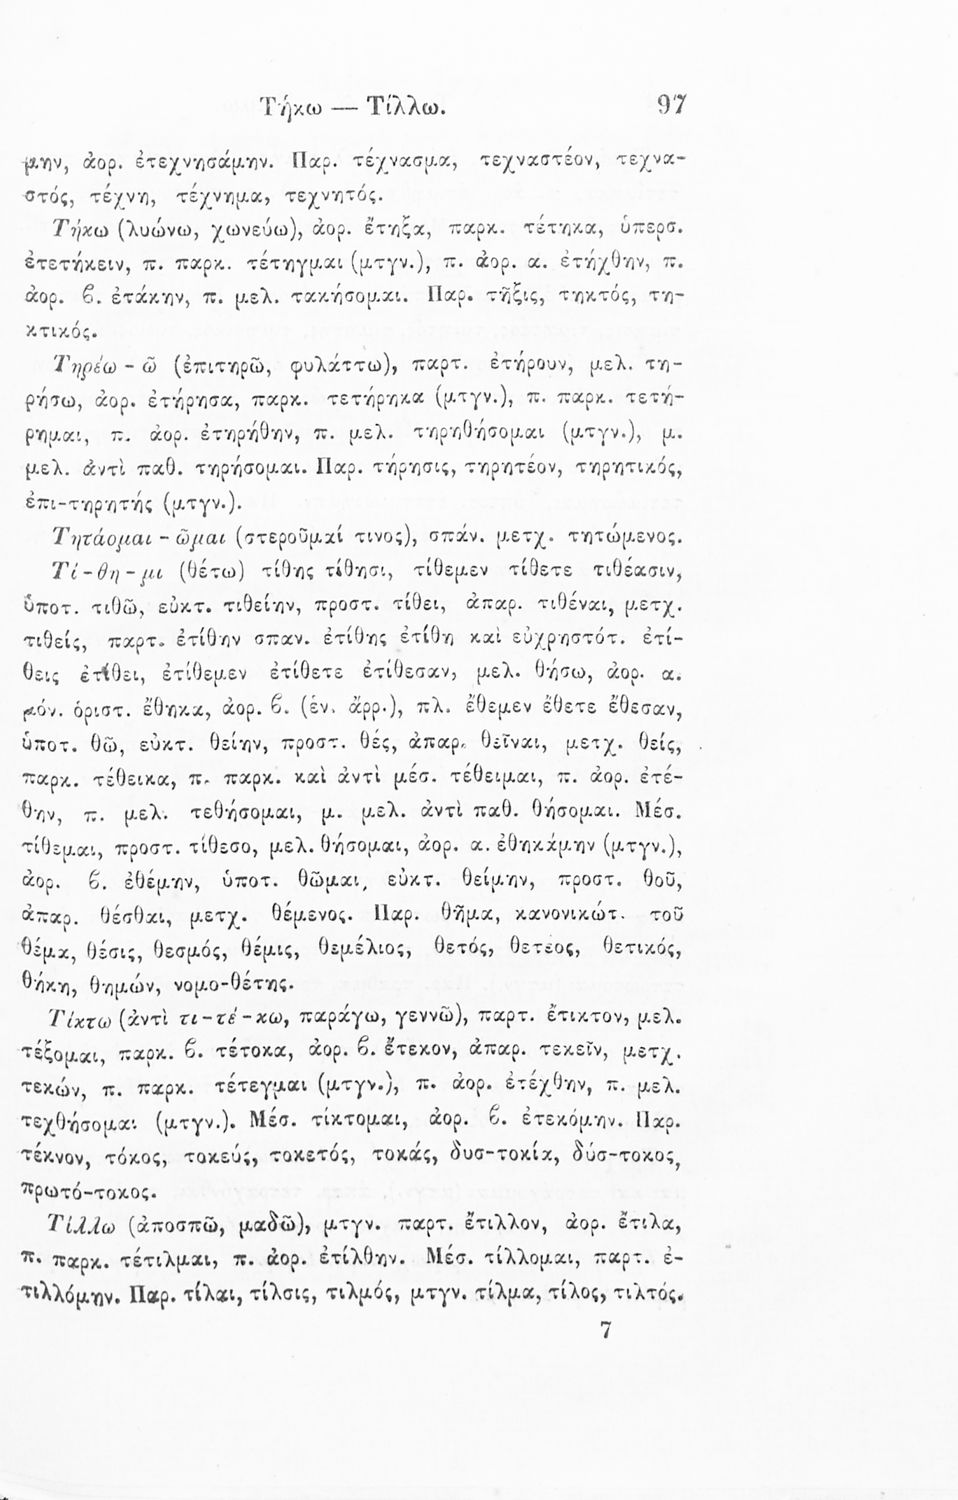 Τήκω — Τίλλω. 97
μην, ἀορ. ἐτεχνησάμην. Παρ. τέχνασμα, τεχναστέον, τεχνα-
στός, τέχνη, τέχνημα, τεχνητός.
Τήκω (λυώνω, χωνεύω), ἀορ. ἔτηξα, παρκ. τέτηκα, ὑπερσ.
ἐτετήκειν, π. παρκ. τέτηγμαι (μτγν.), π. ἀορ. α. ἐτήχθην, π.
ἀορ. ϐ. ἐτάκην, π. μελ. τακήσομαι. Παρ. τῆξις, τηκτός, τη-
κτικός.
Τηρέω - ῶ (ἐπιτηρῶ, φυλάττω), παρτ. ἐτήρουν, μελ. τη-
ρήσω, ἀορ. ἐτήρησα, παρκ. τετήρηκα (μτγν.), π. παρκ. τετή-
ρημαι, π. ἀορ. ἐτηρήθην, π. μελ. τηρηθήσομαι (μτγν.), μ.
μελ. ἀντὶ παθ. τηρήσομαι. Παρ. τήρησις, τηρητέον, τηρητικός,
ἐπι-τηρητής (μτγν.).
Τητάομαι - ῶμαι (στεροῦμαί τινος), σπάν. μετχ. τητώμενος.
Τί-θη-μι (θέτω) τίθης τίθησι, τίθεμεν τίθετε τιθέασιν,
ὑποτ. τιθῶ, εὐκτ. τιθείην, προστ. τίθει, ἀπαρ. τιθέναι, μετχ.
τιθείς, παρτ. ἐτίθην σπαν. ἐτίθης ἐτίθη καὶ εὐχρηστότ. ἐτί-
θεις ἐτίθει, ἐτίθεμεν ἐτίθετε ἐτίθεσαν, μελ. θήσω, ἀορ. α.
μόν. ὁριστ. ἔθηκα, ἀορ. ϐ. (ἑν. ἄρρ.), πλ. ἔθεμεν ἔθετε ἔθεσαν,
ὑποτ. θῶ, εὐκτ. θείην, προστ. θές, ἀπαρ. θεῖναι, μετχ. θείς,
παρκ. τέθεικα, π. παρκ. καὶ ἀντὶ μέσ. τέθειμαι, π. ἀορ. ἐτέ-
θην, π. μελ. τεθήσομαι, μ. μελ. ἀντὶ παθ. θήσομαι. Μέσ.
τίθεμαι, προστ. τίθεσο, μελ. θήσομαι, ἀορ. α. ἐθηκάμην (μτγν.),
ἀορ. ϐ. ἐθέμην, ὑποτ. θῶμαι, εὐκτ. θείμην, προστ. θοῦ,
ἀπαρ. θέσθαι, μετχ. θέμενος. Παρ. θῆμα, κανονικώτ. τοῦ
θέμα, θέσις, θεσμός, θέμις, θεμέλιος, θετός, θετέος, θετικός,
θήκη, θημών, νομο-θέτης.
Τίκτω (ἀντὶ τι-τέ-κω, παράγω, γεννῶ), παρτ. ἔτικτον, μελ.
τέξομαι, παρκ. ϐ. τέτοκα, ἀορ. ϐ. ἔτεκον, ἀπαρ. τεκεῖν, μετχ.
τεκών, π. παρκ. τέτεγμαι (μτγν.), π. ἀορ. ἐτέχθην, π. μελ.
τεχθήσομαι (μτγν.). Μέσ. τίκτομαι, ἀορ. ϐ. ἐτεκόμην. Παρ.
τέκνον, τόκος, τοκεύς, τοκετός, τοκάς, δυσ-τοκία, δύσ-τοκος,
πρωτό-τοκος.
Τίλλω (ἀποσπῶ, μαδῶ), μτγν. παρτ. ἔτιλλον, ἀορ. ἔτιλα,
π. παρκ. τέτιλμαι, π. ἀορ. ἐτίλθην. Μέσ. τίλλομαι, παρτ. ἐ-
τιλλόμην. Παρ. τίλαι, τίλσις, τιλμός, μτγν. τίλμα, τίλος, τιλτός.
7